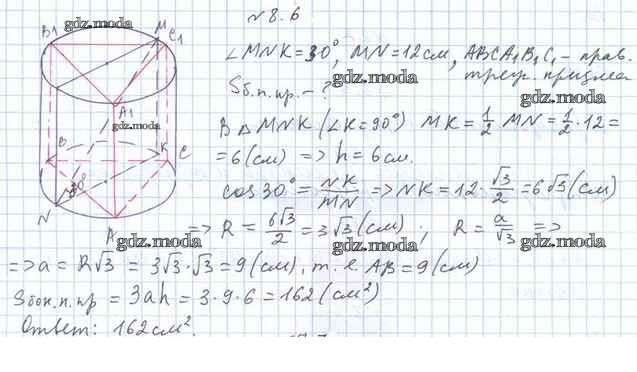 № 8.6
∠MNK = 30°, MN = 12 см, ABCA₁B₁C₁ – прав. треуг. призма
Sб.п.пр. – ?
В △ MNK (∠K = 90°) MK = 1/2 MN = 1/2 · 12 =
= 6 (см) ⇒ h = 6 см.
cos 30° = NK/MN ⇒ NK = 12 · √3/2 = 6√3 (см)
⇒ R = 6√3/2 = 3√3 (см); R = a/√3 ⇒
⇒ a = R√3 = 3√3 · √3 = 9 (см), т. е. AB = 9 (см)
Sбок.п.пр = 3ah = 3 · 9 · 6 = 162 (см²)
Ответ: 162 см².
B1
M
C1
A1
B
K
C
30°
N
A
gdz.moda
gdz.moda
gdz.moda
gdz.moda
gdz.moda
gdz.moda
gdz.moda
gdz.moda
gdz.moda